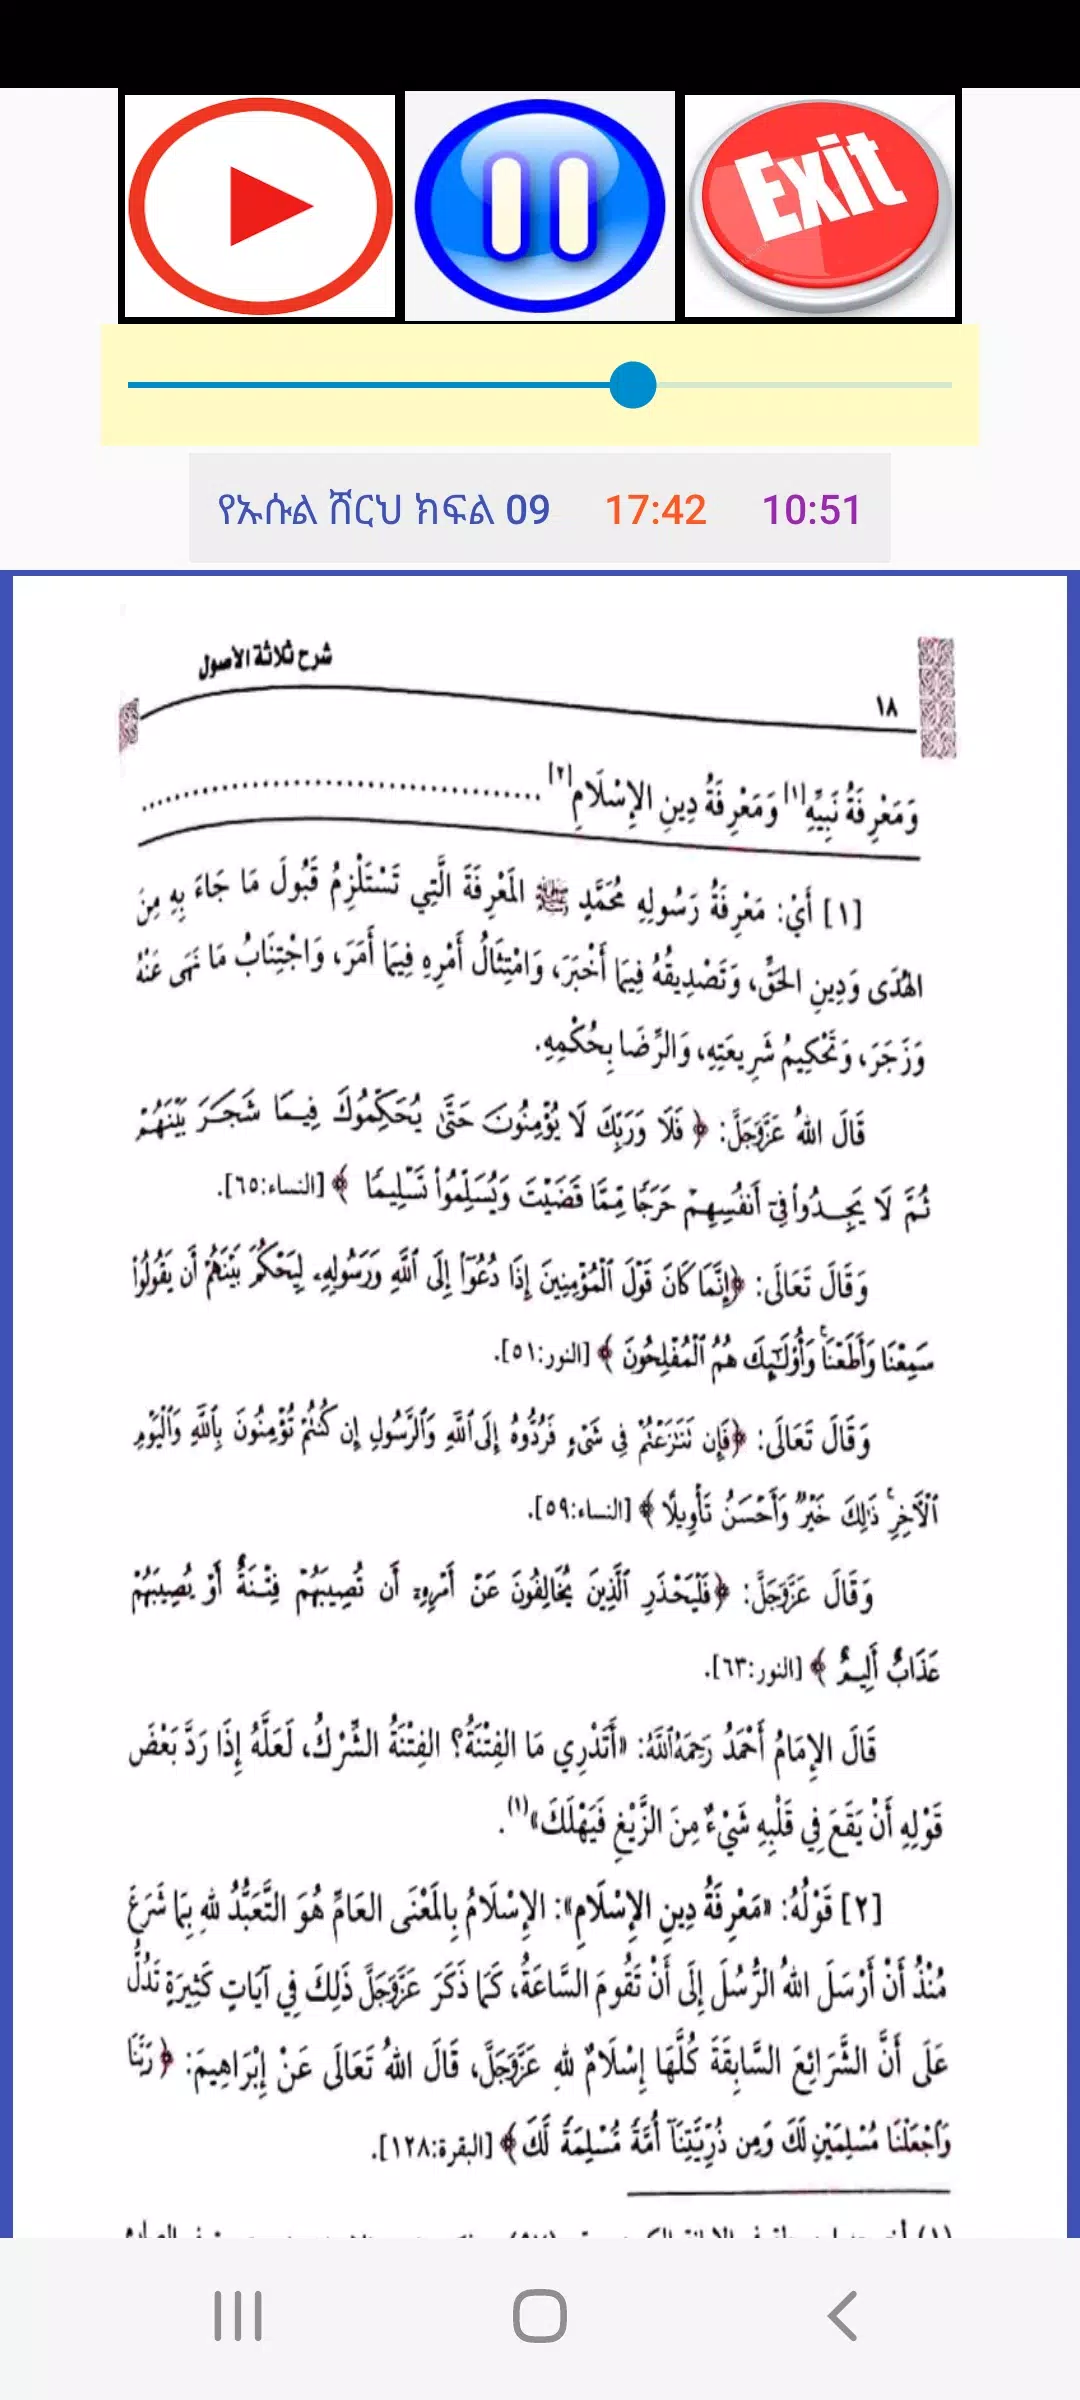 Exit
የኡሱል ሸርህ ክፍል 09 17:42 10:51
شرح ثلاثة الأصول
١٨
وَمَعْرِفَةُ نَبِيِّهِ[١] وَمَعْرِفَةُ دِينِ الإِسْلَامِ[٢] ........................................
[١] أَيْ: مَعْرِفَةُ رَسُولِهِ مُحَمَّدٍ ﷺ المَعْرِفَةَ الَّتِي تَسْتَلْزِمُ قَبُولَ مَا جَاءَ بِهِ مِنَ
الهُدَى وَدِينِ الحَقِّ، وَتَصْدِيقُهُ فِيمَا أَخْبَرَ، وَامْتِثَالُ أَمْرِهِ فِيمَا أَمَرَ، وَاجْتِنَابُ مَا نَهَى عَنْهُ
وَزَجَرَ، وَتَحْكِيمُ شَرِيعَتِهِ، وَالرِّضَا بِحُكْمِهِ.
قَالَ اللهُ عَزَّوَجَلَّ: ﴿ فَلَا وَرَبِّكَ لَا يُؤْمِنُونَ حَتَّىٰ يُحَكِّمُوكَ فِيمَا شَجَرَ بَيْنَهُمْ
ثُمَّ لَا يَجِدُوا۟ فِىٓ أَنفُسِهِمْ حَرَجًا مِّمَّا قَضَيْتَ وَيُسَلِّمُوا۟ تَسْلِيمًا ﴾ [النساء:٦٥].
وَقَالَ تَعَالَى: ﴿إِنَّمَا كَانَ قَوْلَ ٱلْمُؤْمِنِينَ إِذَا دُعُوٓا۟ إِلَى ٱللَّهِ وَرَسُولِهِۦ لِيَحْكُمَ بَيْنَهُمْ أَن يَقُولُوا۟
سَمِعْنَا وَأَطَعْنَا ۚ وَأُو۟لَـٰٓئِكَ هُمُ ٱلْمُفْلِحُونَ ﴾ [النور:٥١].
وَقَالَ تَعَالَى: ﴿فَإِن تَنَـٰزَعْتُمْ فِى شَىْءٍ فَرُدُّوهُ إِلَى ٱللَّهِ وَٱلرَّسُولِ إِن كُنتُمْ تُؤْمِنُونَ بِٱللَّهِ وَٱلْيَوْمِ
ٱلْـَٔاخِرِ ۚ ذَٰلِكَ خَيْرٌ وَأَحْسَنُ تَأْوِيلًا ﴾ [النساء:٥٩].
وَقَالَ عَزَّوَجَلَّ: ﴿فَلْيَحْذَرِ ٱلَّذِينَ يُخَالِفُونَ عَنْ أَمْرِهِۦٓ أَن تُصِيبَهُمْ فِتْنَةٌ أَوْ يُصِيبَهُمْ
عَذَابٌ أَلِيمٌ ﴾ [النور:٦٣].
قَالَ الإِمَامُ أَحْمَدُ رَحِمَهُ ٱللَّهُ: «أَتَدْرِي مَا الفِتْنَةُ؟ الفِتْنَةُ الشِّرْكُ، لَعَلَّهُ إِذَا رَدَّ بَعْضَ
قَوْلِهِ أَنْ يَقَعَ فِي قَلْبِهِ شَيْءٌ مِنَ الزَّيْغِ فَيَهْلَكَ»(١).
[٢] قَوْلُهُ: «مَعْرِفَةُ دِينِ الإِسْلَامِ»: الإِسْلَامُ بِالمَعْنَى العَامِّ هُوَ التَّعَبُّدُ للهِ بِمَا شَرَعَ
مُنْذُ أَنْ أَرْسَلَ اللهُ الرُّسُلَ إِلَى أَنْ تَقُومَ السَّاعَةُ، كَمَا ذَكَرَ عَزَّوَجَلَّ ذَلِكَ فِي آيَاتٍ كَثِيرَةٍ تَدُلُّ
عَلَى أَنَّ الشَّرَائِعَ السَّابِقَةَ كُلَّهَا إِسْلَامٌ للهِ عَزَّوَجَلَّ، قَالَ اللهُ تَعَالَى عَنْ إِبْرَاهِيمَ: ﴿ رَبَّنَا
وَٱجْعَلْنَا مُسْلِمَيْنِ لَكَ وَمِن ذُرِّيَّتِنَآ أُمَّةً مُّسْلِمَةً لَّكَ ﴾ [البقرة:١٢٨].